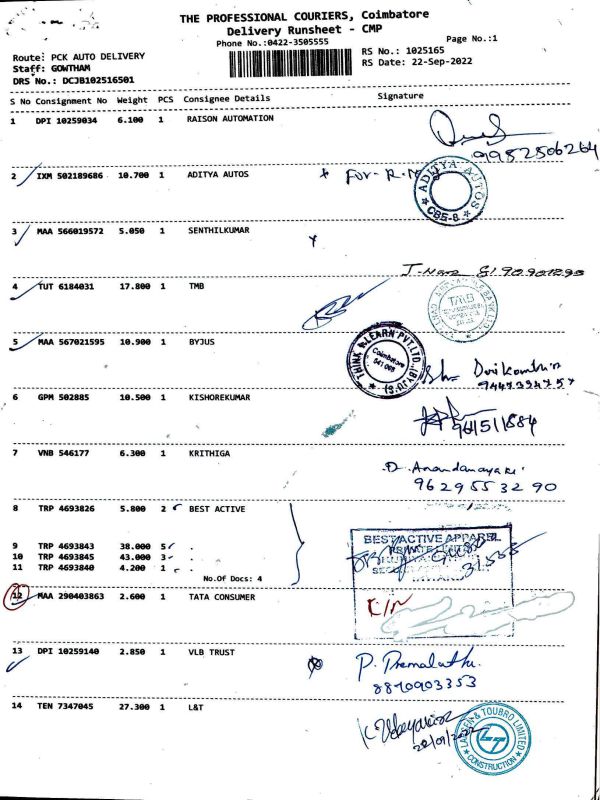 THE PROFESSIONAL COURIERS, Coimbatore
Delivery Runsheet - CMP
Phone No.:0422-3505555
Page No.:1
Route: PCK AUTO DELIVERY
RS No.: 1025165
Staff: GOWTHAM
RS Date: 22-Sep-2022
DRS No.: DCJB102516501
S No Consignment No Weight PCS Consignee Details Signature
1 DPI 10259034 6.100 1 RAISON AUTOMATION
9952506264
2 IXM 502189686 10.700 1 ADITYA AUTOS
For R.M
ADITYA AUTOS
CBE-8
3 MAA 566019572 5.050 1 SENTHILKUMAR
4 TUT 6184031 17.800 1 TMB
TMB
5 MAA 567021595 10.900 1 BYJUS
THINK & LEARN PVT.LTD.
Coimbatore
6 GPM 502885 10.500 1 KISHOREKUMAR
7 VNB 546177 6.300 1 KRITHIGA
D. Anandanayaki
9629553290
8 TRP 4693826 5.800 2 BEST ACTIVE
9 TRP 4693843 38.000 5 .
10 TRP 4693845 43.000 3 .
11 TRP 4693840 4.200 1 .
No.Of Docs: 4
BEST ACTIVE APPAREL
12 MAA 290403863 2.600 1 TATA CONSUMER
13 DPI 10259140 2.850 1 VLB TRUST
P. Premalatha.
8870903353
14 TEN 7347045 27.300 1 L&T
LARSEN & TOUBRO LIMITED
CONSTRUCTION